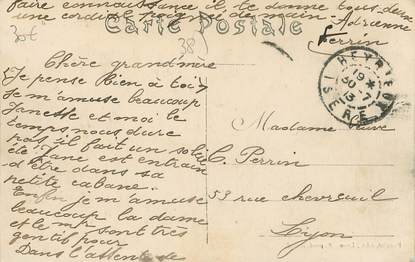 faire connaissance il te donne tous deux
une cordiale poignée de main. Adrienne
Perrin
Carte Postale
38
Chère grand'mère
Je pense Bien à toi
je m'amuse beaucoup
et moi le
temps nous dure
pas il fait un soleil
été Jane est entrain
d'être dans sa
petite cabane.
Enfin je m'amuse
beaucoup la dame
et le mr sont très
gentif pour
Dans l'attente de
HEYRIEUX
19
30-7
13
ISERE
Madame Veuve
C. Perrin
53 rue chevreuil
Lyon